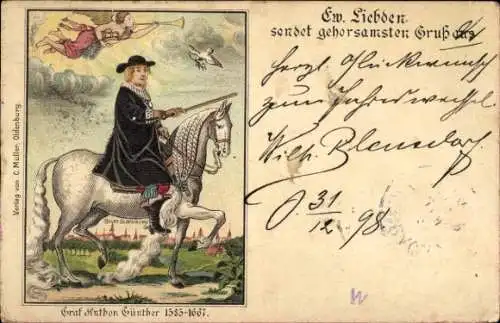 Ew. Liebden
sendet gehorsamsten Gruß aus
herzl. Glückwunsch
zum Jahreswechsel
Wilh.
O. 31/12 98.
Verlag von C. Müller, Oldenburg.
Graf Anthon Günther 1583-1667.